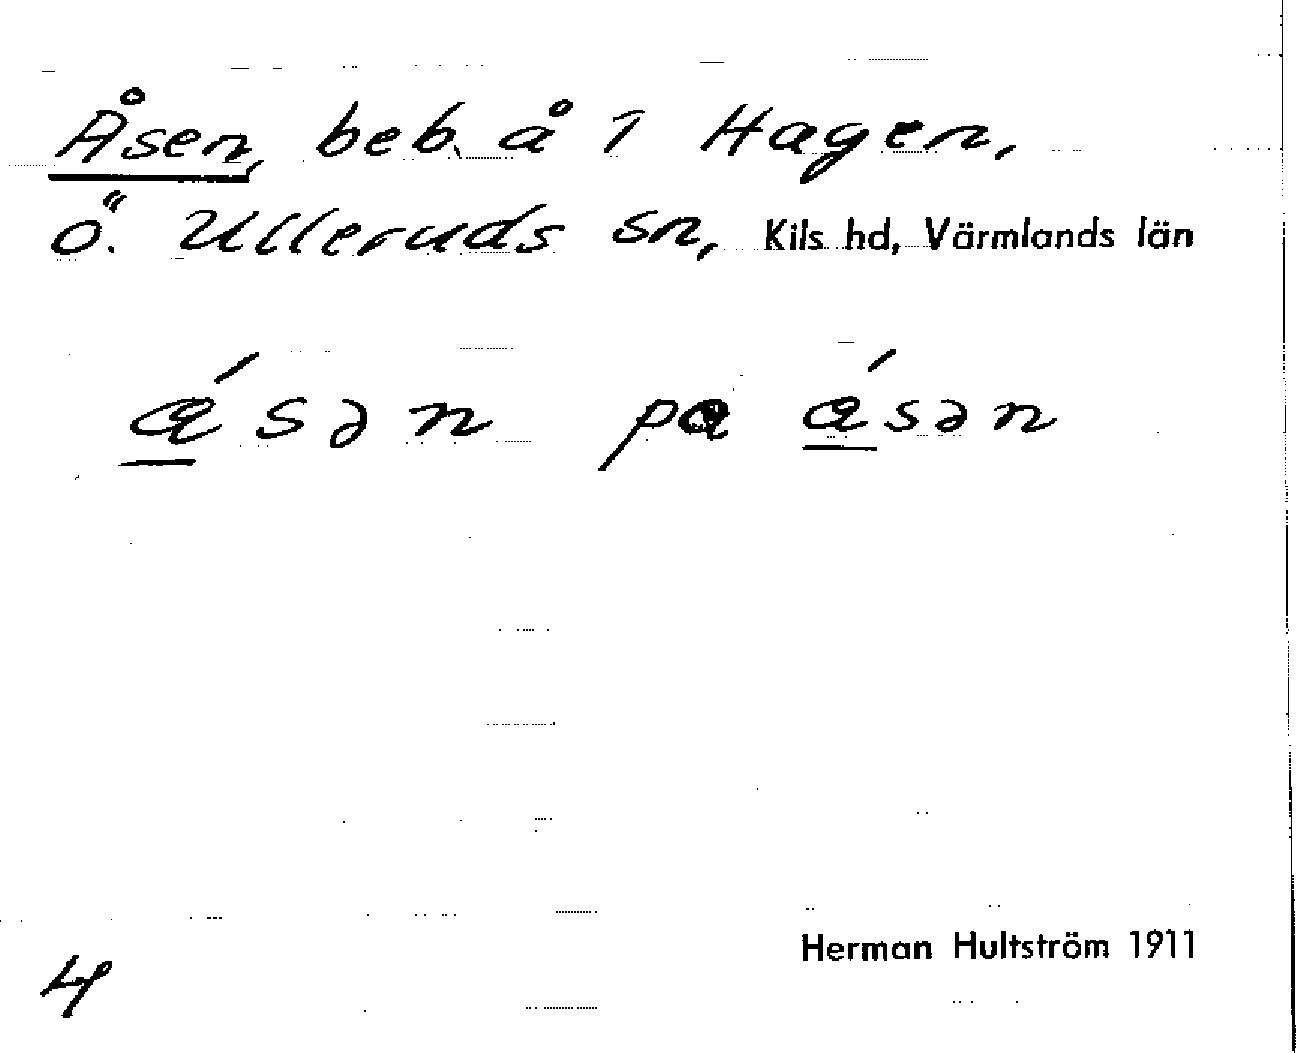 Åsen, beb. å 1 Hagen,
Ö. Ulleruds sn, Kils hd, Värmlands län
á̲sən pa á̲sən
Herman Hultström 1911
4